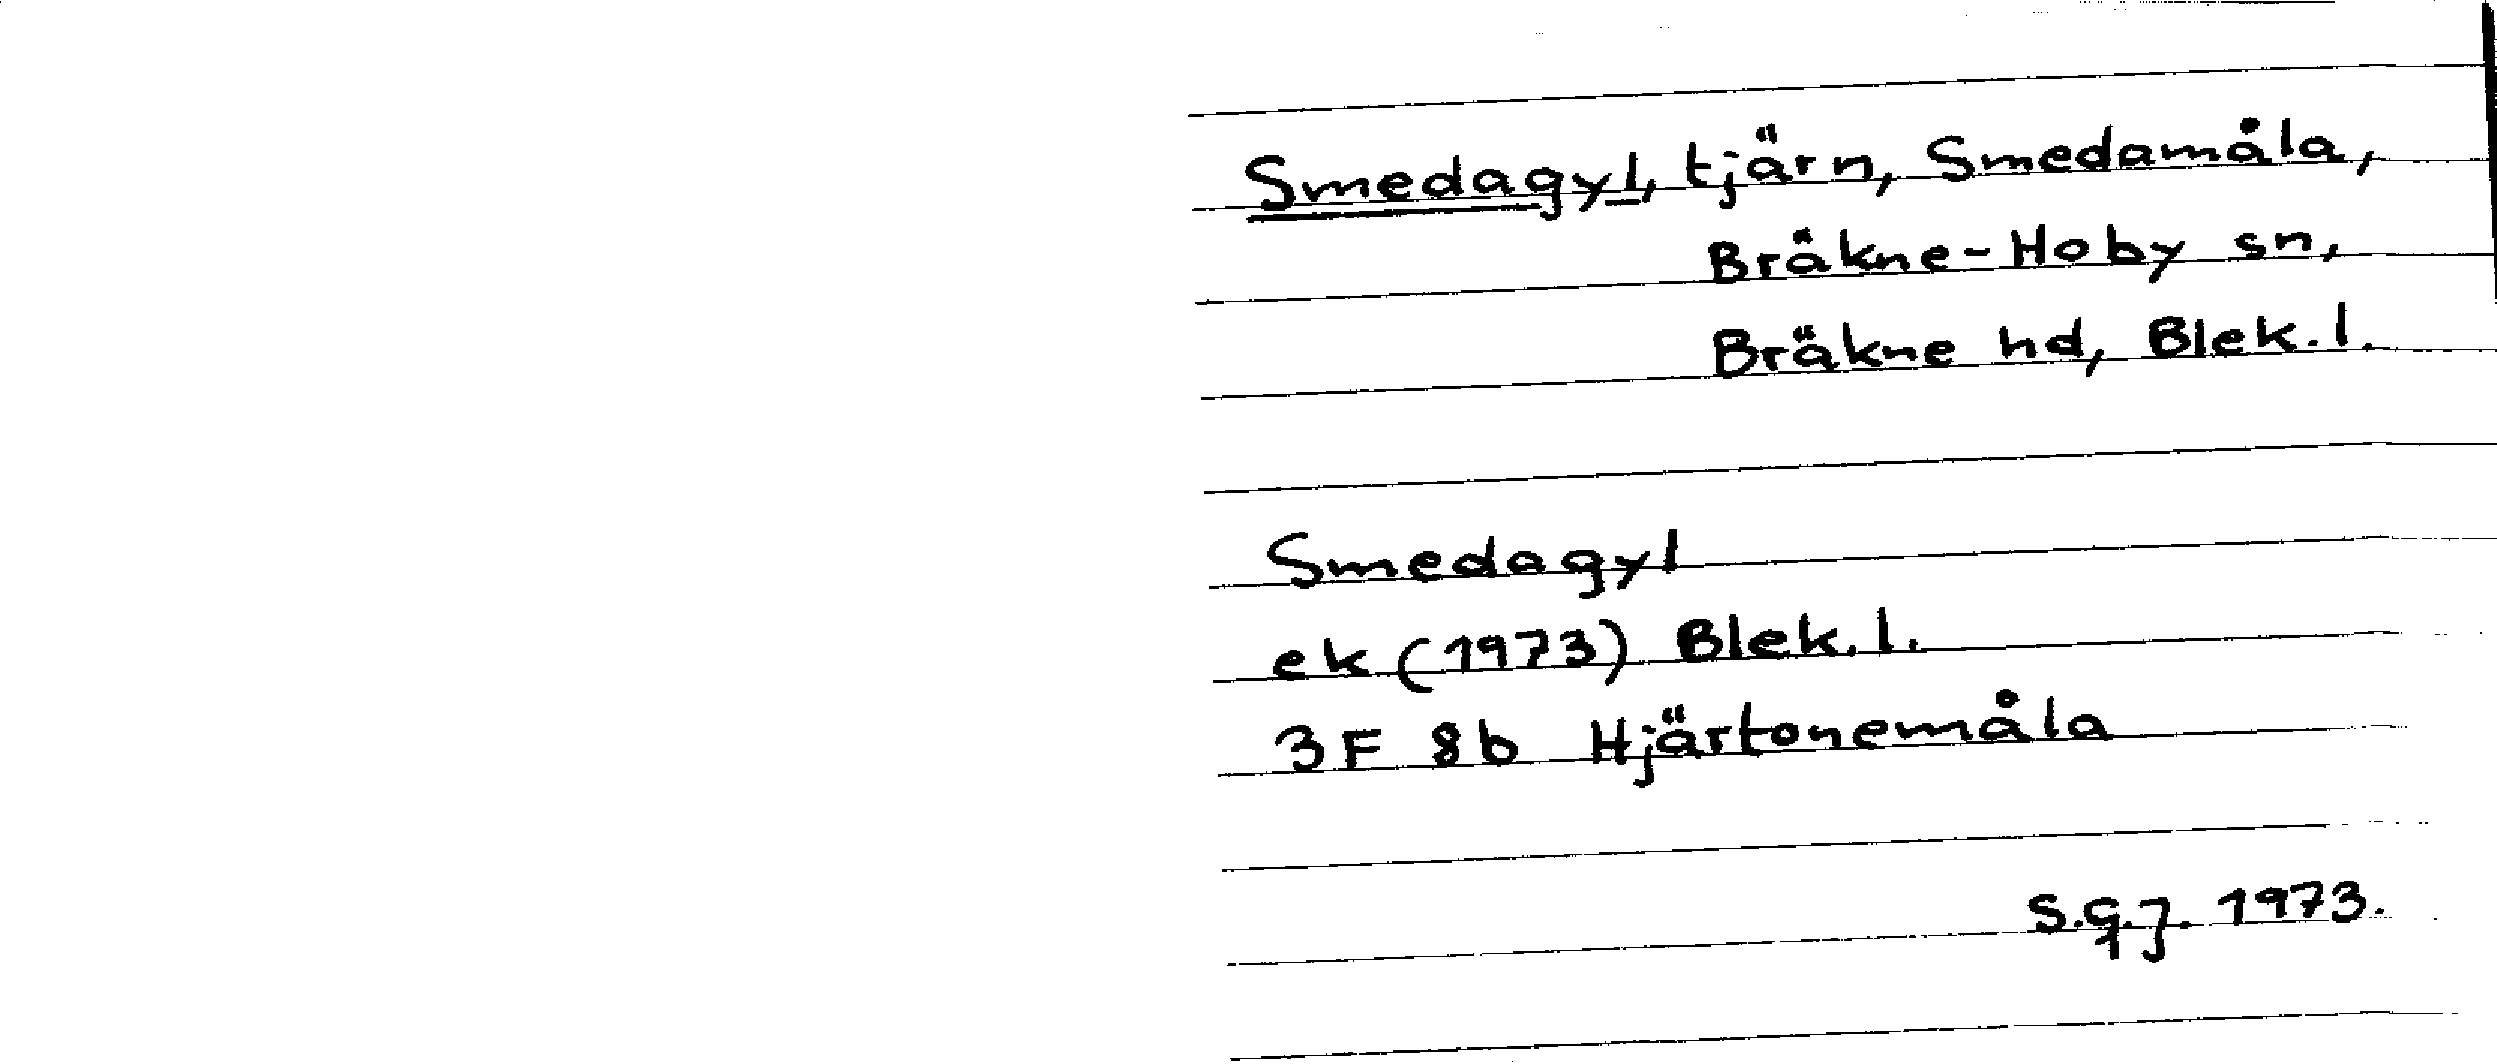 Smedagyl, tjärn, Smedamåla,
Bräkne-Hoby sn,
Bräkne hd, Blek. l.
Smedagyl
ek (1973) Blek. l.
3F 8b Hjärtonemåla
S.G.J. 1973.